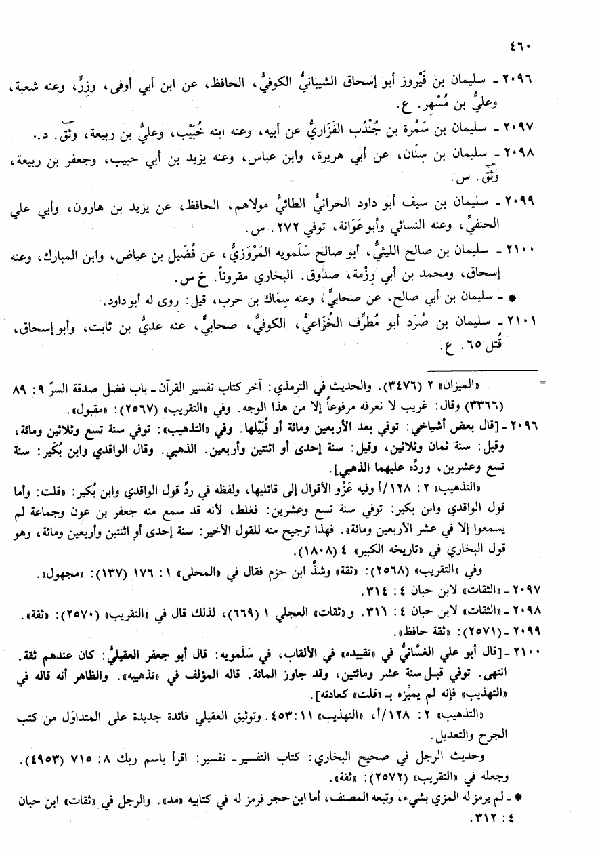 ٤٦٠
٢٠٩٦ - سليمان بن فَيْروز أبو إسحاق الشيبانيُّ الكوفيُّ، الحافظ، عن ابن أبي أوفى، وزِرٍّ، وعنه شعبة،
وعليُّ بن مُسْهِر. ع.
٢٠٩٧ - سليمان بن سَمُرة بن جُنْدُب الفَزَاريُّ عن أبيه، وعنه ابنه خُبَيْب، وعليُّ بن ربيعة، وثق. د.
٢٠٩٨ - سليمان بن سِنَان، عن أبي هريرة، وابن عباس، وعنه يزيد بن أبي حبيب، وجعفر بن ربيعة،
وثق. س.
٢٠٩٩ - سليمان بن سيف أبو داود الحرانيُّ الطائيُّ مولاهم، الحافظ، عن يزيد بن هارون، وأبي علي
الحنفيِّ، وعنه النسائي وأبو عَوَانة، توفي ٢٧٢. س.
٢١٠٠ - سليمان بن صالح الليثيُّ، أبو صالح سَلْمويه المَرْوَزيُّ، عن فُضَيل بن عياض، وابن المبارك، وعنه
إسحاق، ومحمد بن أبي رِزْمة، صدوق. البخاري مقروناً. خ س.
* - سليمان بن أبي صالح، عن صحابيٍّ، وعنه سِمَاك بن حرب، قيل: روى له أبو داود.
٢١٠١ - سليمان بن صُرَد أبو مُطَرِّف الخُزَاعيُّ، الكوفيُّ، صحابيٌّ، عنه عديُّ بن ثابت، وأبو إسحاق،
قُتل ٦٥. ع.
= «الميزان» ٢ (٣٤٧٦). والحديث في الترمذي: آخر كتاب تفسير القرآن - باب فضل صدقة السرّ ٩: ٨٩
(٣٣٦٦) وقال: غريب لا نعرفه مرفوعاً إلا من هذا الوجه. وفي «التقريب» (٢٥٦٧): «مقبول».
٢٠٩٦ - [قال بعض أشياخي: توفي بعد الأربعين ومائة أو قُبَيْلها. وفي «التذهيب»: توفي سنة تسع وثلاثين ومائة،
وقيل: سنة ثمان وثلاثين، وقيل: سنة إحدى أو اثنتين وأربعين. الذهبي. وقال الواقدي وابن بُكَير: سنة
تسع وعشرين، وردَّه عليهما الذهبي].
«التذهيب» ٢: ١٦٨/أ وفيه عَزْو الأقوال إلى قائليها، ولفظه في ردِّ قول الواقدي وابن بُكير: «قلت: وأما
قول الواقدي وابن بكير: توفي سنة تسع وعشرين: فغلط، لأنه قد سمع منه جعفر بن عون وجماعة لم
يسمعوا إلا في عشر الأربعين ومائة». فهذا ترجيح منه للقول الأخير: سنة إحدى أو اثنتين وأربعين ومائة، وهو
قول البخاري في «تاريخه الكبير» ٤ (١٨٠٨).
وفي «التقريب» (٢٥٦٨): «ثقة» وشذَّ ابن حزم فقال في «المحلى» ١: ١٧٦ (١٣٧): «مجهول».
٢٠٩٧ - «الثقات» لابن حبان ٤: ٣١٤.
٢٠٩٨ - «الثقات» لابن حبان ٤: ٣١٦. و«ثقات» العجلي ١ (٦٦٩)، لذلك قال في «التقريب» (٢٥٧٠): «ثقة».
٢٠٩٩ - (٢٥٧١): «ثقة حافظ».
٢١٠٠ - [قال أبو علي الغسَّانيُّ في «تقييده» في الألقاب، في سَلْمويه: قال أبو جعفر العقيليُّ: كان عندهم ثقة.
انتهى. توفي قبل سنة عشر ومائتين، وقد جاوز المائة. قاله المؤلف في «تذهيبه». والظاهر أنه قاله في
«التهذيب» فإنه لم يميِّزه بـ«قلت» كعادته].
«التذهيب» ٢: ١٢٨/أ، «التهذيب» ١١: ٤٥٣. وتوثيق العقيلي فائدة جديدة على المتداوَل من كتب
الجرح والتعديل.
وحديث الرجل في صحيح البخاري: كتاب التفسير - تفسير: اقرأ باسم ربك ٨: ٧١٥ (٤٩٥٣).
وجعله في «التقريب» (٢٥٧٢): «ثقة».
* - لم يرمز له المزي بشيء، وتبعه المصنف، أما ابن حجر فرمز له في كتابيه «مد». والرجل في «ثقات» ابن حبان
٤: ٣١٢.